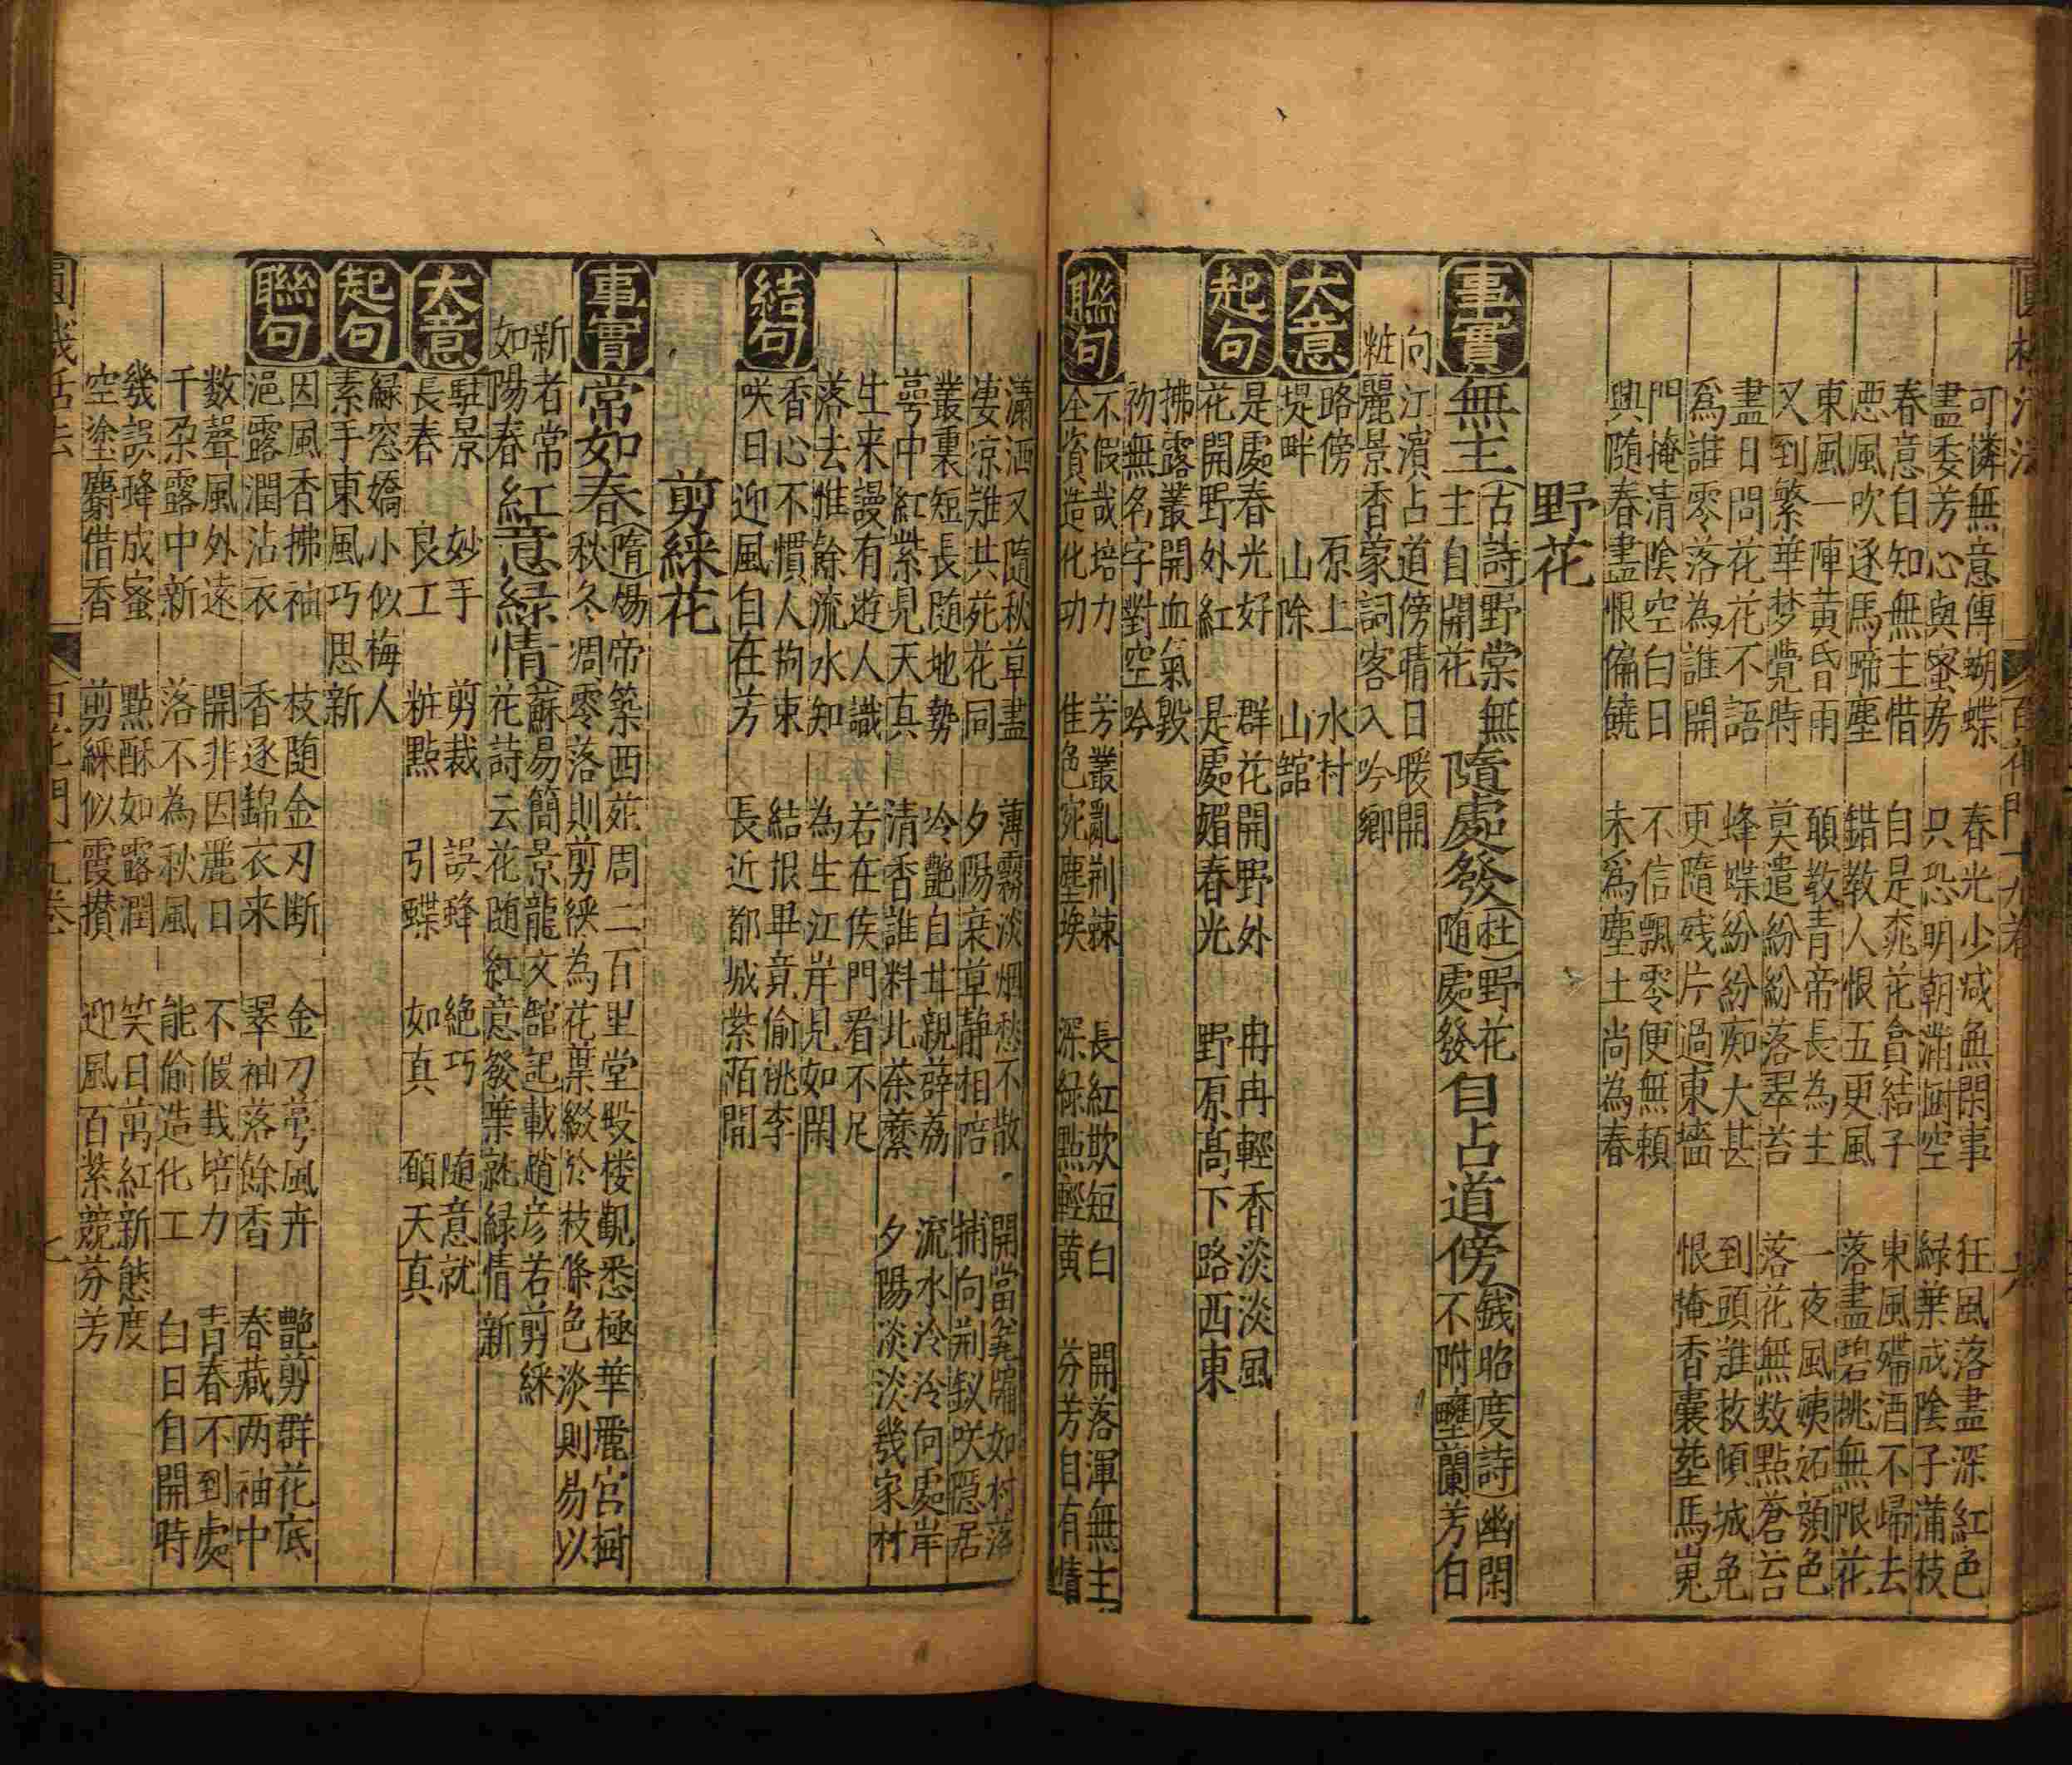 可憐無意傳蝴蝶　春光少減無閑事　狂風落盡深紅色
盡委芳心與蜜房　只恐明朝滿樹空　緑葉成陰子滿枝
春意自知無主惜　自是桃花貪結子　東風殢酒不歸去
悪風吹逐馬蹄塵　錯教人恨五更風　落盡碧桃無限花
東風一陣黃昏雨　願教青帝長為主　一夜風姨妬顏色
又到繁華梦覺時　莫遣紛紛落翠苔　落花無数點蒼苔
盡日問花花不語　蜂蝶紛紛痴大甚　到頭難救傾城免
爲誰零落為誰開　更隨殘片過東墻　恨掩香囊塟馬嵬
門掩清陰空白日　不信飄零便無頼
興随春盡恨偏饒　未爲塵土尚為春
野花
事實　無主(古詩)野棠無主自開花　隨處發(杜)野花随處發　自占道傍(錢昭度詩)幽閑不附壅蘭芳自
向江濱占道傍晴日暖開
粧麗景香蒙詞客入吟鄉
大意　路傍　原上　水村
堤畔　山除　山舘
起句　是處春光好　群花開野外　冉冉輕香淡淡風
花開野外紅　是處媚春光　野原髙下路西東
拂露叢開血氣毀
初無名字對空吟
聯句　不假哉培力　芳叢亂荆棘　長紅欺短白　開落渾無主
全資造化功　佳色宛塵埃　深緑點輕黄　芬芳自有情
瀟洒又隨秋草盡　薄霧淡烟愁不散　開當茅牖如村落
凄凉雖共苑花同　夕陽衰草静相陪　補向荆釵咲隱居
叢裏短長随地勢　冷艷自甘親薜荔　流水冷冷向處岸
蕚中紅紫見天真　清香誰料比荼蘼　夕陽淡淡幾家村
生来謾有遊人識　若在侯門看不足
落去惟餘流水知　為生江岸見如閑
結句　香心不慣人拘束　結根畢竟偷桃李
咲日迎風自在芳　長近都城紫陌間
剪綵花
事實　常如春(隋)煬帝築西苑周二百里堂殿楼觀悉極華麗宮樹
秋冬凋零落則剪綵為花葉綴於枝條色淡則易以
新者常如陽春　紅意緑情(蘇易簡景龍文舘記載趙彦若剪綵花詩云花随紅意發葉就緑情新
大意　駐景　妙手　剪裁　誤蜂　絶巧　随意就
長春　良工　粧點　引蝶　如真　奪天真
起句　緑窓嬌小似梅人
素手東風巧思新
聯句　因風香拂袖　枝随金刃断　金刀蕚風卉　艷剪群花底
浥露潤沾衣　香逐錦衣来　翠袖落餘香　春藏两袖中
数聲風外遠　開非因麗日　不假栽培力　青春不到處
千朶露中新　落不為秋風　能偷造化工　白日自開時
幾誤蜂成蜜　點酥如露潤　笑日萬紅新態度
空塗麝借香　剪綵似霞攅　迎風百紫競芬芳